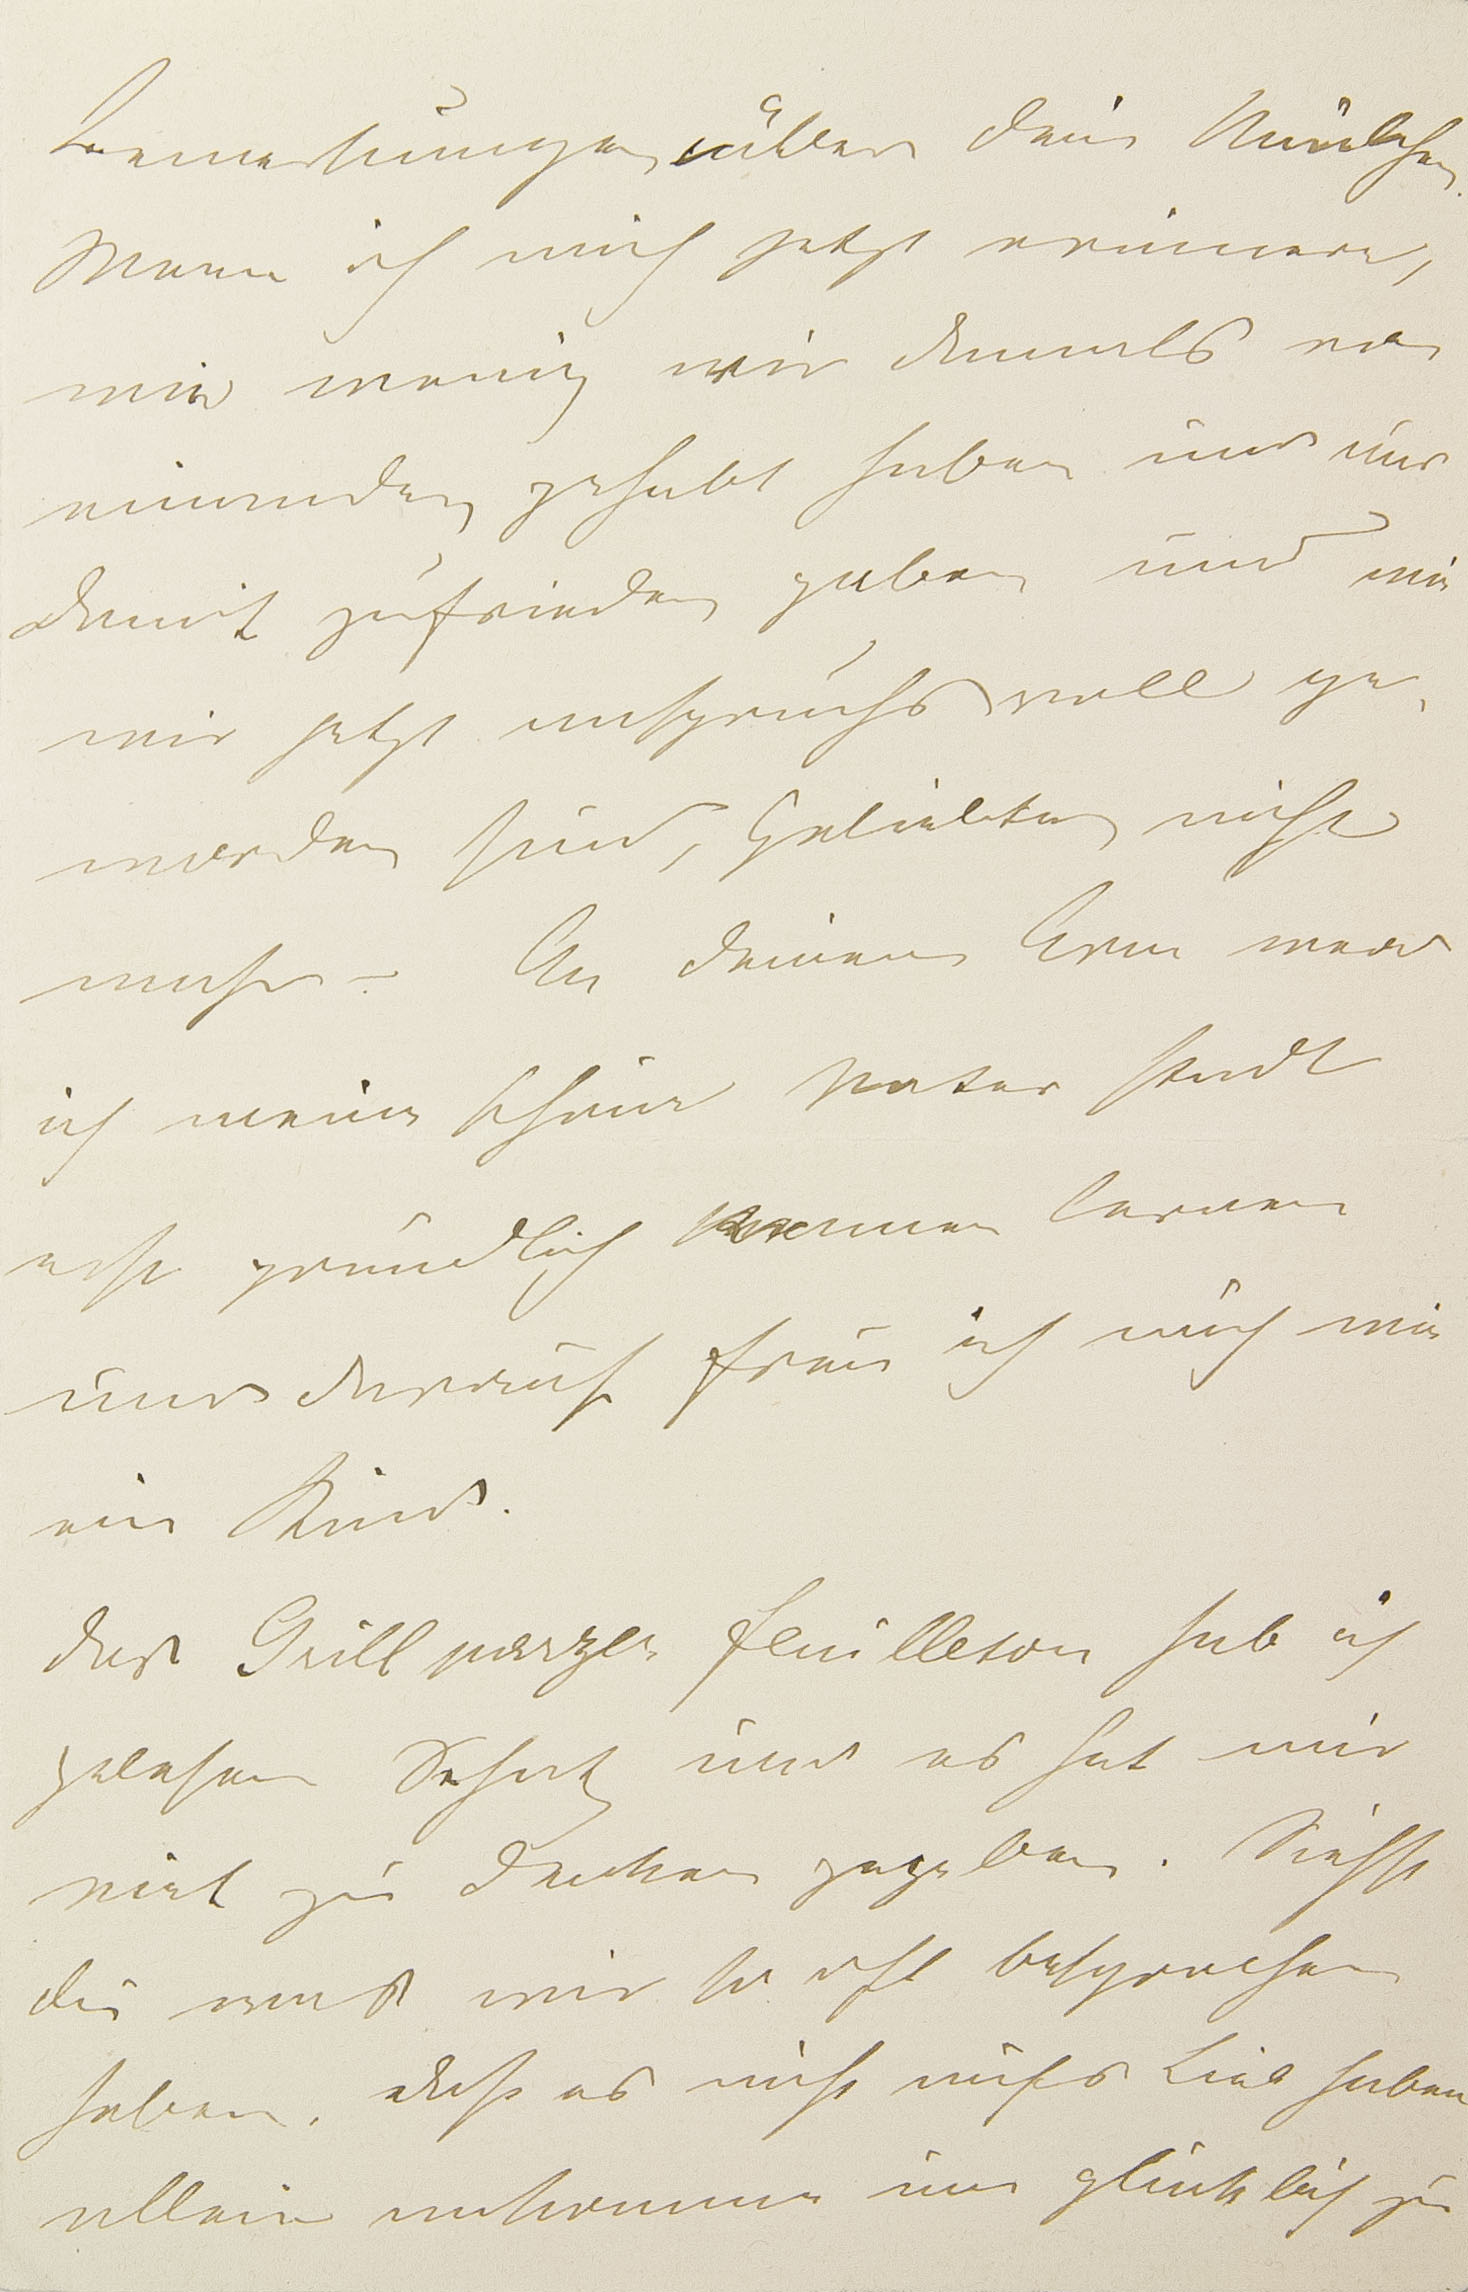 Bemerkungen über dein Mündchen.
Wenn ich mich jetzt erinnere,
wie wenig wir damals von
einander gehabt haben und uns
damit zufrieden gaben und wie
wir jetzt anspruchsvoll ge-
worden sind, Geliebter, nicht
mehr – An deinem Arm werd
ich meine schöne Vater stadt
erst gründlich kennen lernen
und darauf freu ich mich wie
ein Kind.
das Grillparzer feuilleton hab ich
gelesen Schatz und es hat mir
viel zu denken gegeben. Siehst
du was wir so oft besprochen
haben, dass es nicht aufs Lieb haben
allein ankomme um glücklich zu